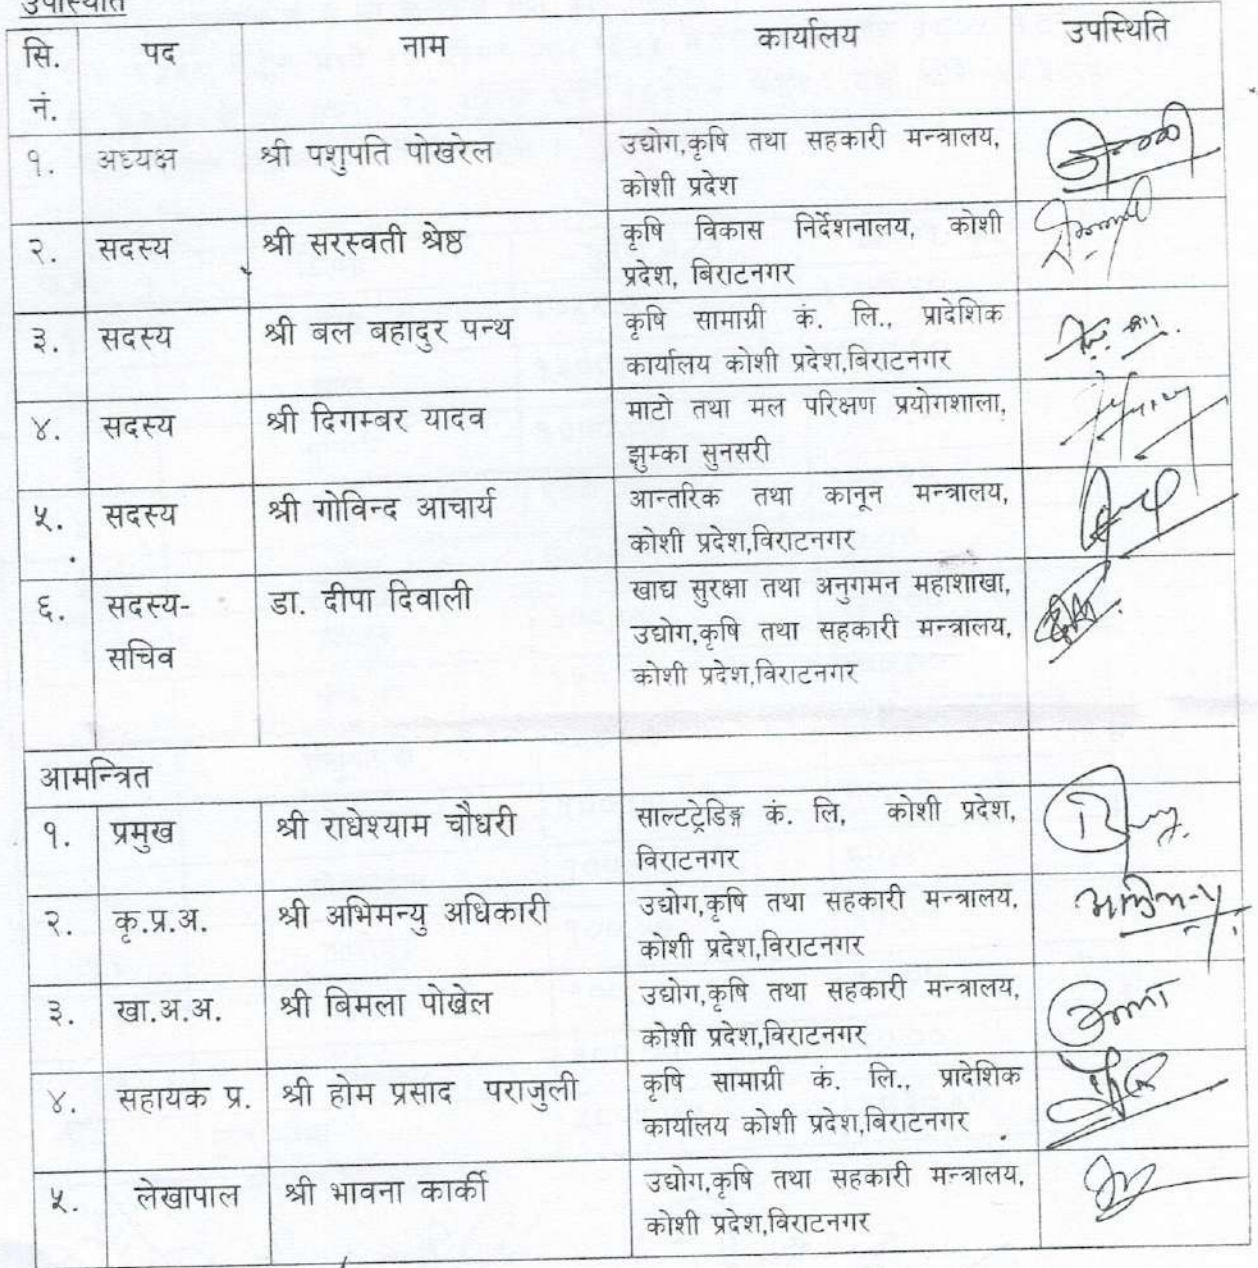 उपस्थिति
सि. नं. पद नाम कार्यालय उपस्थिति
१. अध्यक्ष श्री पशुपति पोखरेल उद्योग,कृषि तथा सहकारी मन्त्रालय,
कोशी प्रदेश
२. सदस्य श्री सरस्वती श्रेष्ठ कृषि विकास निर्देशनालय, कोशी
प्रदेश, बिराटनगर
३. सदस्य श्री बल बहादुर पन्थ कृषि सामाग्री कं. लि., प्रादेशिक
कार्यालय कोशी प्रदेश,बिराटनगर
४. सदस्य श्री दिगम्बर यादव माटो तथा मल परिक्षण प्रयोगशाला,
झुम्का सुनसरी
५. सदस्य श्री गोविन्द आचार्य आन्तरिक तथा कानून मन्त्रालय,
कोशी प्रदेश,विराटनगर
६. सदस्य- डा. दीपा दिवाली खाद्य सुरक्षा तथा अनुगमन महाशाखा,
सचिव उद्योग,कृषि तथा सहकारी मन्त्रालय,
कोशी प्रदेश,विराटनगर
आमन्त्रित
१. प्रमुख श्री राधेश्याम चौधरी साल्टट्रेडिङ्ग कं. लि, कोशी प्रदेश,
विराटनगर
२. कृ.प्र.अ. श्री अभिमन्यु अधिकारी उद्योग,कृषि तथा सहकारी मन्त्रालय,
कोशी प्रदेश,विराटनगर
३. खा.अ.अ. श्री बिमला पोख्रेल उद्योग,कृषि तथा सहकारी मन्त्रालय,
कोशी प्रदेश,विराटनगर
४. सहायक प्र. श्री होम प्रसाद पराजुली कृषि सामाग्री कं. लि., प्रादेशिक
कार्यालय कोशी प्रदेश,बिराटनगर
५. लेखापाल श्री भावना कार्की उद्योग,कृषि तथा सहकारी मन्त्रालय,
कोशी प्रदेश,विराटनगर